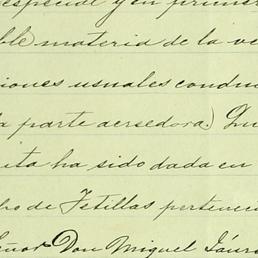 especial y en primer
ble material de la ve
ciones usuales condu
la parte acreedora.) Qu
ita ha sido dada en
ho de Tetillas pertenec
eñor Don Miguel